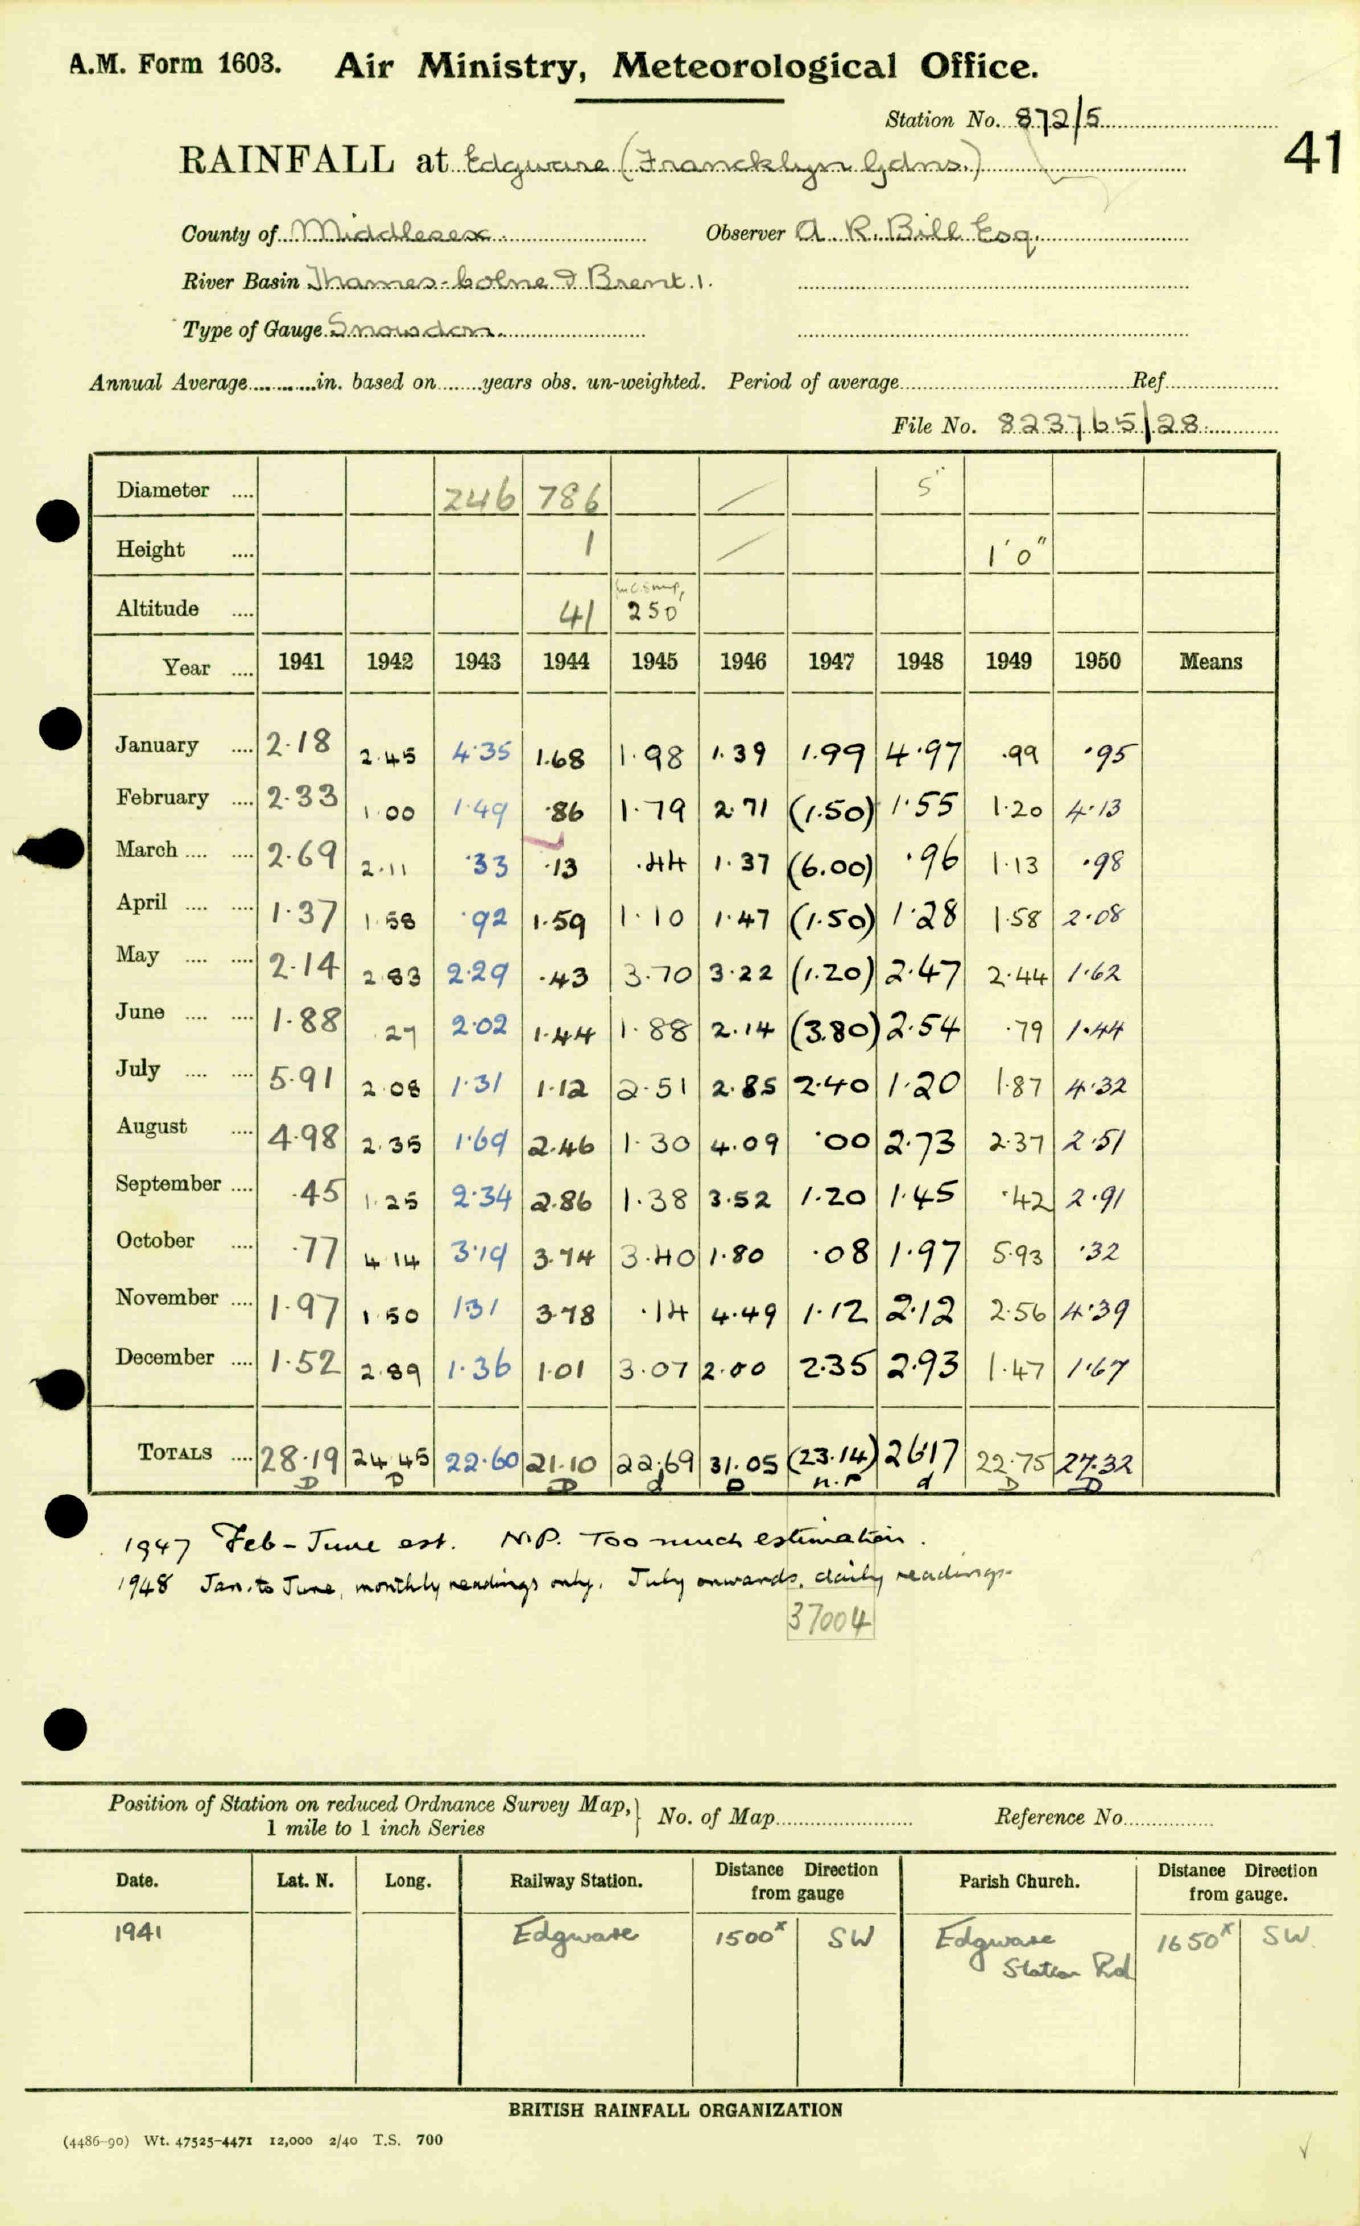 A.M. Form 1603. Air Ministry, Meteorological Office.
Station No. 872/5
41
RAINFALL at Edgware (Francklyn Gdns.)
County of Middlesex. Observer A. R. Bill Esq.
River Basin Thames-Colne & Brent. 1.
Type of Gauge Snowdon.
Annual Average............in. based on........years obs. un-weighted. Period of average............Ref............
File No. 823765/28
Diameter .... 246 786 5"
Height .... 1 1'0"
Altitude .... 41 250
Year .... 1941 1942 1943 1944 1945 1946 1947 1948 1949 1950 Means
January .... 2.18 2.45 4.35 1.68 1.98 1.39 1.99 4.97 .99 .95
February .... 2.33 1.00 1.49 .86 1.79 2.71 (1.50) 1.55 1.20 4.13
March .... .... 2.69 2.11 .33 .13 .44 1.37 (6.00) .96 1.13 .98
April .... .... 1.37 1.58 .92 1.59 1.10 1.47 (1.50) 1.28 1.58 2.08
May .... .... 2.14 2.83 2.29 .43 3.70 3.22 (1.20) 2.47 2.44 1.62
June .... .... 1.88 .27 2.02 1.44 1.88 2.14 (3.80) 2.54 .79 1.44
July .... .... 5.91 2.08 1.31 1.12 2.51 2.85 2.40 1.20 1.87 4.32
August .... 4.98 2.35 1.69 2.46 1.30 4.09 .00 2.73 2.37 2.51
September .... .45 1.25 2.34 2.86 1.38 3.52 1.20 1.45 .42 2.91
October .... .77 4.14 3.19 3.74 3.40 1.80 .08 1.97 5.93 .32
November .... 1.97 1.50 1.31 3.78 .14 4.49 1.12 2.12 2.56 4.39
December .... 1.52 2.89 1.36 1.01 3.07 2.00 2.35 2.93 1.47 1.67
TOTALS .... 28.19 24.45 22.60 21.10 22.69 31.05 (23.14) 26.17 22.75 27.32
D D D d D n.P d D D
1947 Feb - June est. N.P. Too much estimation.
1948 Jan. to June, monthly readings only. July onwards, daily readings.
37004
Position of Station on reduced Ordnance Survey Map, } No. of Map............ Reference No............
1 mile to 1 inch Series
Date. Lat. N. Long. Railway Station. Distance Direction from gauge Parish Church. Distance Direction from gauge.
1941 Edgware 1500x SW Edgware 1650x SW.
Station Rd
BRITISH RAINFALL ORGANIZATION
(4486-90) Wt. 47525-4471 12,000 2/40 T.S. 700